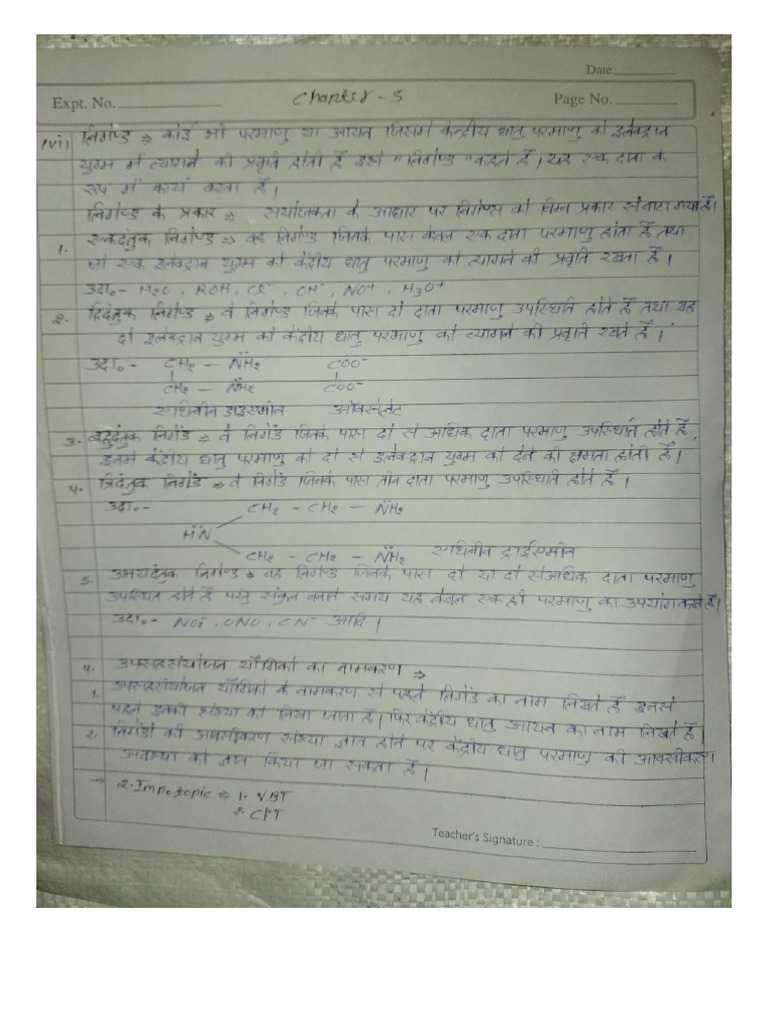 Date
Expt. No. Chapter - 5 Page No.
(vi) लिगेण्ड ⇒ कोई भी परमाणु या आयन जिसमे केन्द्रीय धातु परमाणु को इलेक्ट्रान
युग्म में त्यागने की प्रवृति होती हैं इसे "लिगेण्ड" कहते हैं। यह एक दाता के
रूप में कार्य करता हैं।
लिगेण्ड के प्रकार ⇒ संयोजकता के आधार पर लिगेण्ड्स को निम्न प्रकार से बाटा गया हैं।
1. एकदंतुक लिगेण्ड ⇒ वह लिगेण्ड जिनके पास केवल एक दाता परमाणु होता हैं तथा
जो एक इलेक्ट्रान युग्म को केंद्रीय धातु परमाणु को त्यागने की प्रवृति रखता हैं।
उदा०- H2O, ROH, Cl⁻, OH⁻, NO⁺, H3O⁺
2. द्विदंतुक लिगेण्ड ⇒ वे लिगेण्ड जिनके पास दो दाता परमाणु उपस्थिति होते हैं तथा यह
दो इलेक्ट्रान युग्म को केंद्रीय धातु परमाणु को त्यागने की प्रवृति रखते हैं।
उदा०- CH2 — N̈H2 COO⁻
CH2 — N̈H2 COO⁻
एथिलीन डाइएमीन ऑक्सेलेट
3. बहुदंतुक लिगेंड ⇒ वे लिगेंड जिनके पास दो से अधिक दाता परमाणु उपस्थिति होते हैं,
इनमे केंद्रीय धातु परमाणु को दो से इलेक्ट्रान युग्म को देने की क्षमता होती हैं।
4. त्रिदंतुक लिगेंड ⇒ वे लिगेंड जिनके पास तीन दाता परमाणु उपस्थिति होते हैं।
उदा०- CH2 — CH2 — N̈H2
HN̈
CH2 — CH2 — N̈H2 एथिलीन ट्राईएमीन
5. उभयदंतुक लिगेण्ड ⇒ वह लिगेण्ड जिनके पास दो या दो से अधिक दाता परमाणु
उपस्थित होते हैं परंतु संकुल बनाते समय यह केवल एक ही परमाणु का उपयोग करते हैं।
उदा०- NO2⁻, ONO, CN⁻ आदि।
4. उपसहसंयोजन यौगिको का नामकरण ⇒
1. उपसहसंयोजन यौगिको के नामकरण से पहले लिगेंड का नाम लिखते हैं इनसे
पहले इनकी संख्या को लिखा जाता हैं। फिर केंद्रीय धातु आयन का नाम लिखते हैं।
2. लिगेंडो की आक्सीकरण संख्या ज्ञात होने पर केंद्रीय धातु परमाणु की आक्सीकरण
अवस्था को ज्ञात किया जा सकता हैं।
→ 2. Imp. topic ⇒ 1. VBT
2. CFT
Teacher's Signature :